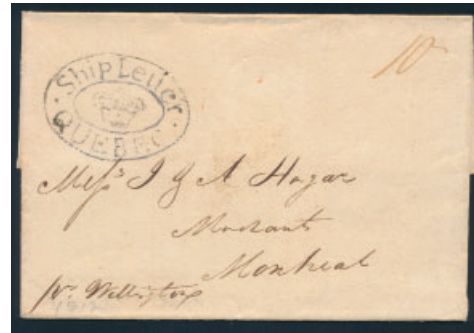 Ship Letter
QUEBEC
10
Mess.rs J & A Hagar
Merchants
Montreal
pr. Wellington